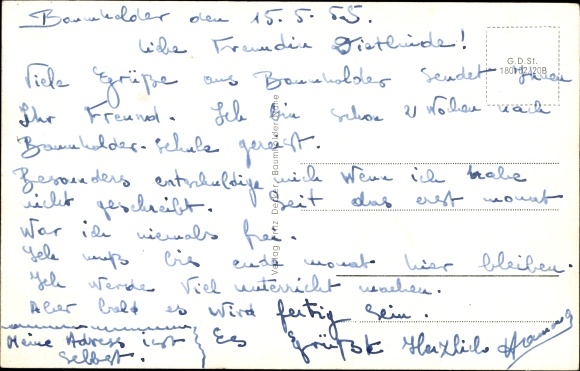 Baumholder den 15.5.65.
liebe Freundin Dietlinde!
G.D.St.
Viele Grüße aus Baumholder sendet Ihnen
Ihr Freund. Ich bin schon 2 Wochen nach
Baumholder-schule gereist.
Besonders entschuldige mich Wenn ich habe
nicht geschreibt. seit das erst monat
War ich niemals frei.
Ich muß bis ende monat hier bleiben.
Ich werde Viel unterricht machen.
Aber bald es wird fertig sein.
Meine Adress ist selbst.
Es Grüßt Herzlich
Verlag Franz Baumholder/Nahe